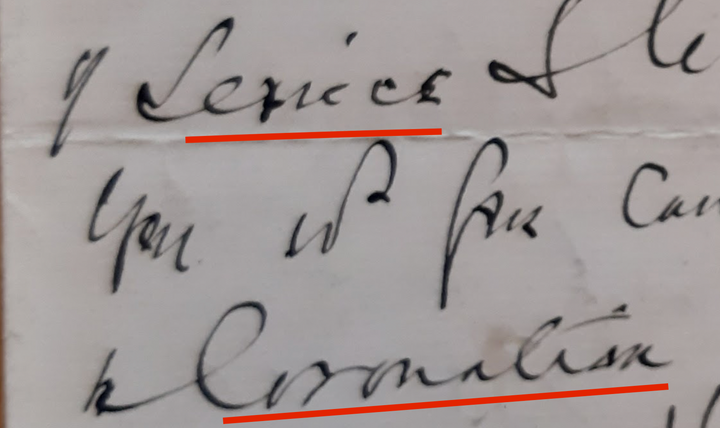 of Service I le
you if you can
to Coronation